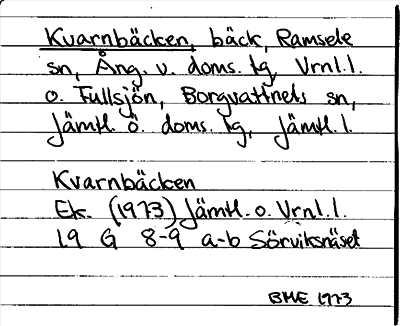 Kvarnbäcken, bäck, Ramsele
sn, Ång. v. doms. tg, Vrnl.l.
o. Fullsjön, Borgvattnets sn,
Jämtl. ö. doms. tg, Jämtl. l.
Kvarnbäcken
Ek. (1973) Jämtl. o. Vrnl.l.
19 G 8-9 a-b Sörviksnäset
BME 1973